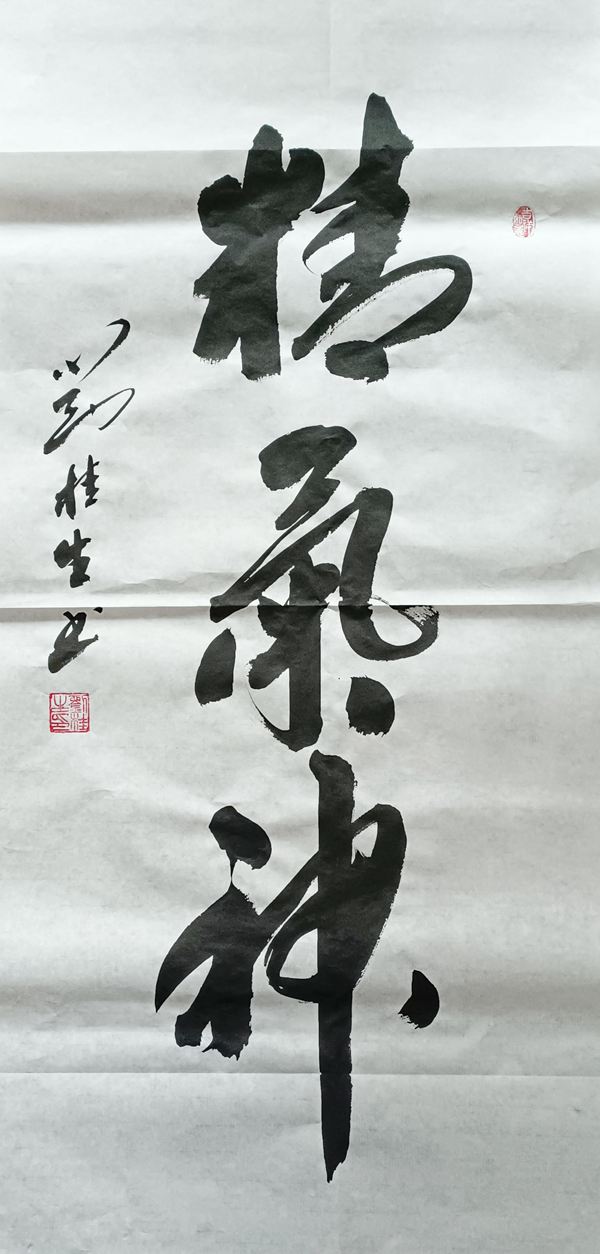 精氣神
劉桂生书